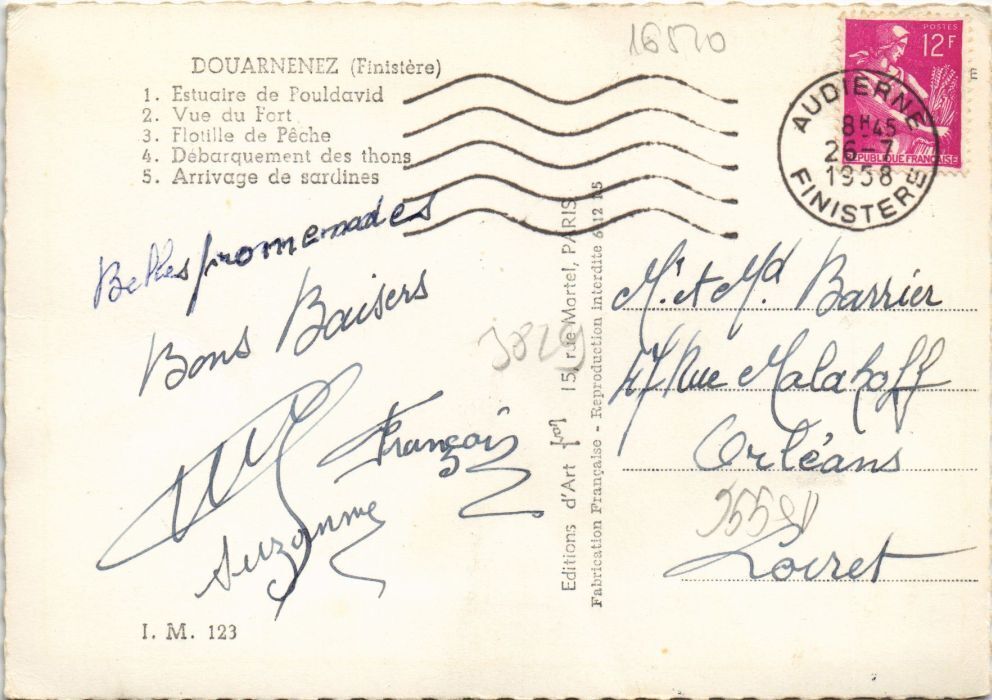 16520
DOUARNENEZ (Finistère)
1. Estuaire de Pouldavid
2. Vue du Fort
3. Flotille de Pêche
4. Débarquement des thons
5. Arrivage de sardines
Belles promenades
Bons Baisers
François
Suzanne
I. M. 123
Editions d'Art 15, rue Martel, PARIS
Fabrication Française - Reproduction interdite
POSTES
12F
REPUBLIQUE FRANÇAISE
AUDIERNE
8H45
26-7
1958
FINISTERE
Mr et Md Barrier
47 Rue Malakoff
Orléans
Loiret